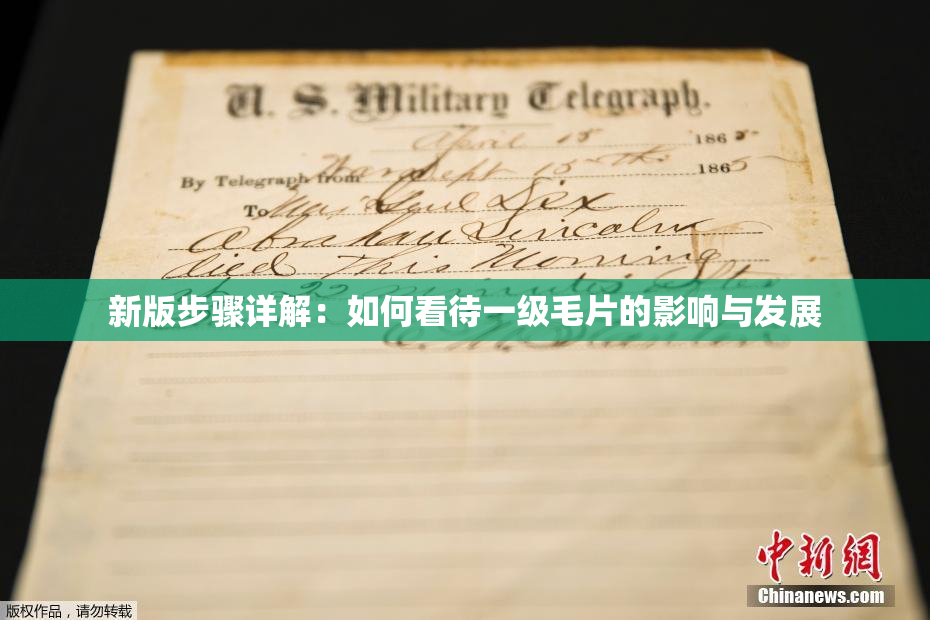 U. S. Military Telegraph.
April 15 1865
By Telegraph from War Dept 15th 1865
To Maj Genl Dix
Abraham Lincoln
died This Morning
22 minutes after
新版步骤详解：如何看待一级毛片的影响与发展
E. M. Stanton
中新网
Chinanews.com
版权作品，请勿转载